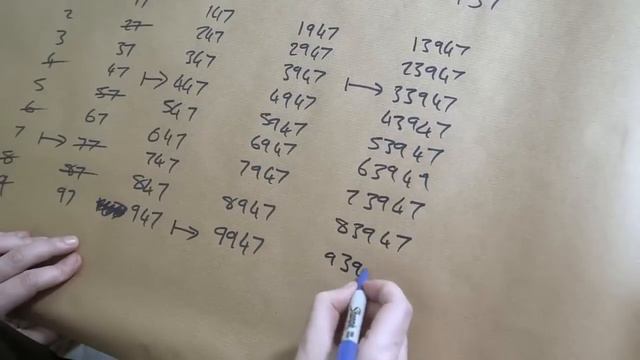 2
3
4
5
6
7
8
27
37
47
57
67
↦ 77
87
97
147
247
347
↦ 447
547
647
747
847
947
1947
2947
3947
4947
5947
6947
7947
8947
↦ 9947
13947
23947
↦ 33947
43947
53947
63947
73947
83947
939